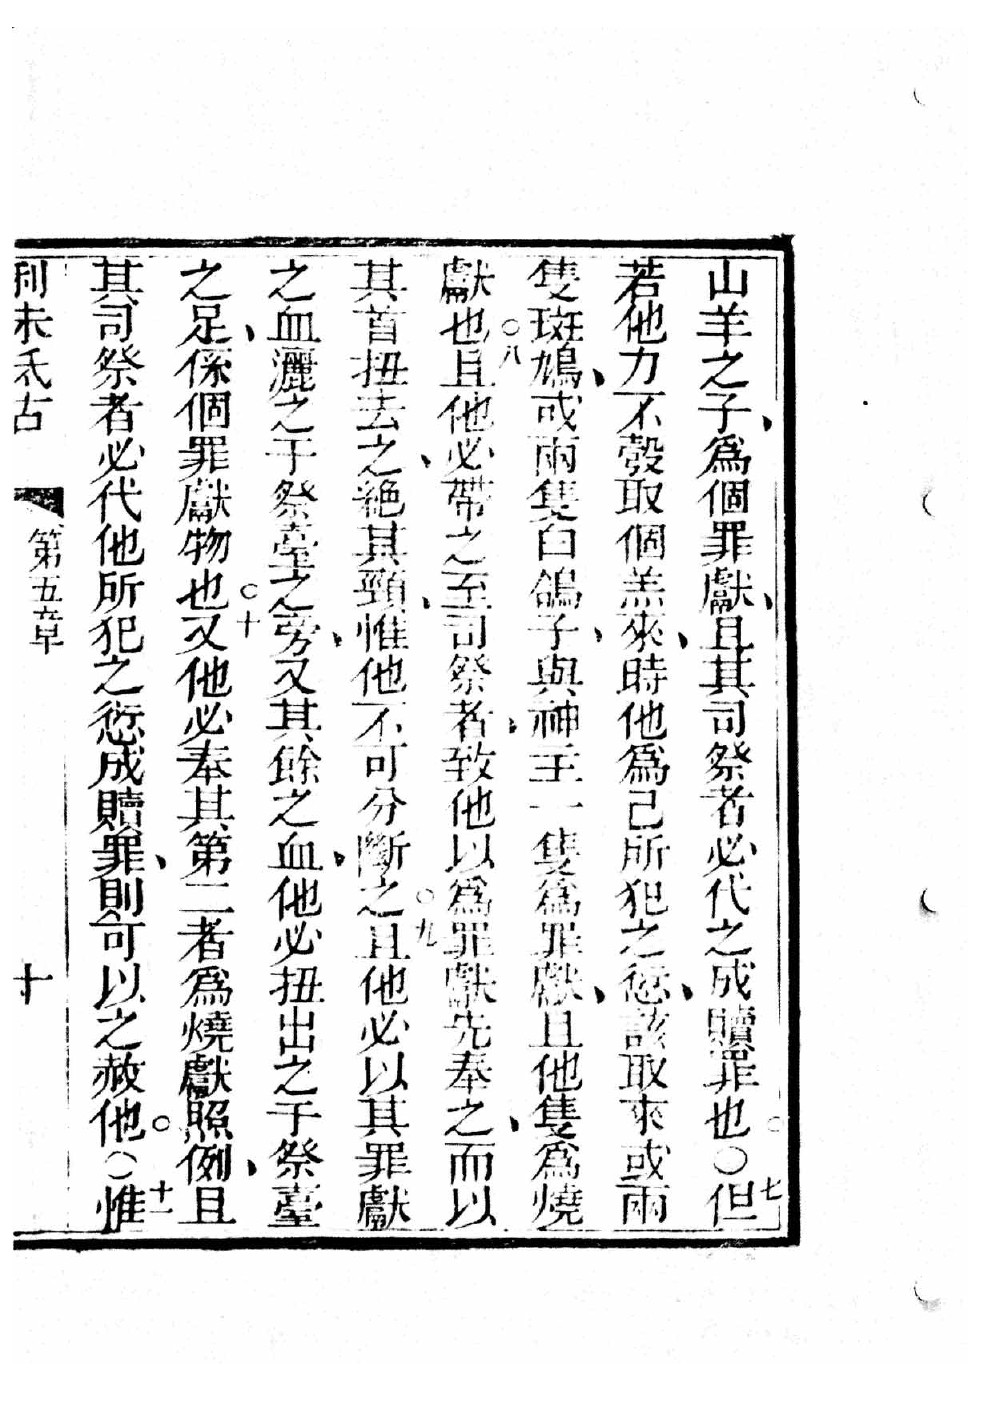 山羊之子、爲個罪獻、且其司祭者必代之成贖罪也○七○但
若他力不彀取個羔來、時他爲己所犯之愆、該取來或兩
隻斑鳩、或兩隻白鴿子、與神主一隻爲罪獻、且他隻爲燒
獻也○八且他必帶之至司祭者、致他以爲罪獻先奉之、而以
其首扭去之、絕其頸、惟他不可分斷之○九且他必以其罪獻
之血灑之于祭臺之旁、又其餘之血、他必扭出之于祭臺
之足、係個罪獻物也○十又他必奉其第二者爲燒獻照例、且
其司祭者必代他所犯之愆成贖罪、則可以之赦他○十一○惟
利未氏古
第五章
十